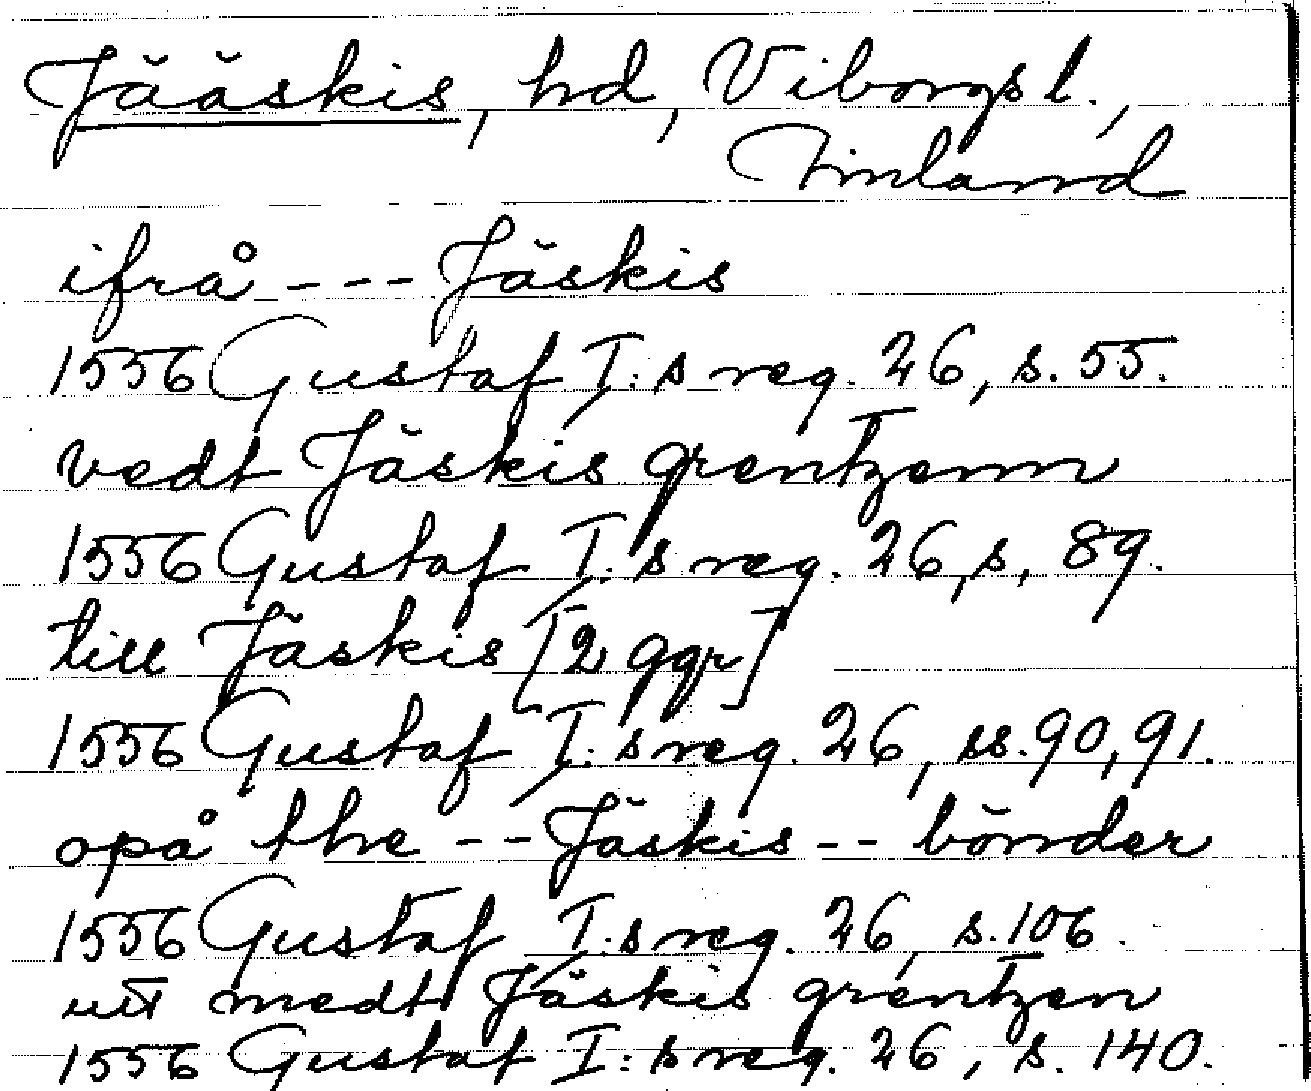 Jääskis, hd, Viborgs l.,
Finland
ifrå --- Jäskis
1556 Gustaf I:s reg. 26, s. 55.
vedt Jäskis grentzenn
1556 Gustaf I:s reg. 26, s. 89.
till Jäskis [2 ggr]
1556 Gustaf I:s reg. 26, ss. 90, 91.
opå the -- Jäskis -- bönder
1556 Gustaf I:s reg. 26, s. 106.
utt medt Jäskis grentzen
1556 Gustaf I:s reg. 26, s. 140.